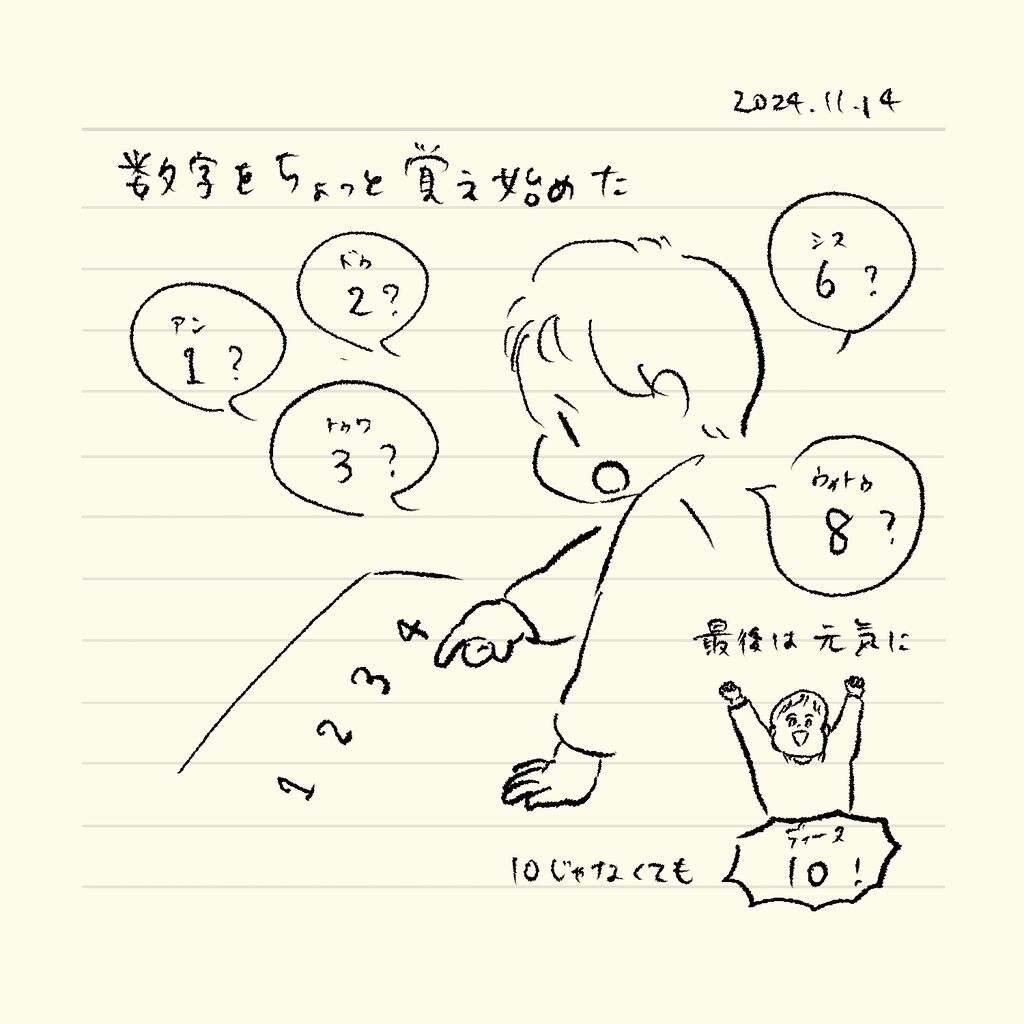 2024.11.14
数字をちょっと覚え始めた
アン
1?
ドゥ
2?
トゥワ
3?
シス
6?
ウィトゥ
8?
1
2
3
4
最後は元気に
10じゃなくても
ディース
10!